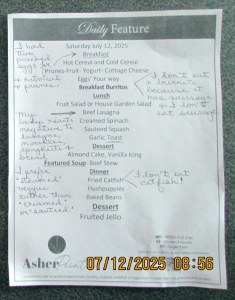 Daily Feature
Saturday July 12, 2025
Breakfast
Hot Cereal and Cold Cereal
Prunes-Fruit- Yogurt- Cottage Cheese
Eggs' Your way
Breakfast Burritos
Lunch
Fruit Salad or House Garden Salad
Beef Lasagna
Creamed Spinach
Sauteed Squash
Garlic Toast
Dessert
Almond Cake, Vanilla Icing
Featured Soup: Beef Stew
Dinner
Fried Catfish
Hushpuppies
Baked Beans
Dessert
Fruited Jello
I had
two
poached
eggs
oatmeal
+ prunes.
I don't eat
a burrito
because it
has sausage
+ I don't
eat sausage
My
negative to
lasagna
noodles,
spaghetti +
bread
I prefer
"steamed"
veggies
rather than
"creamed"
or "sauteed."
I don't eat
catfish!
Asher
07/12/2025 08:56